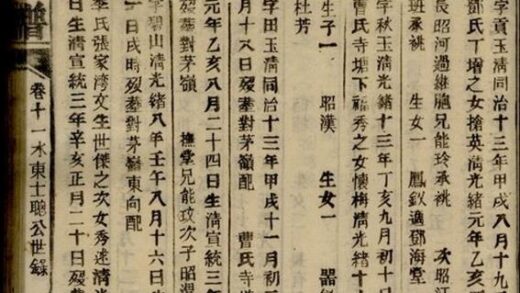 字貢玉清同治十三年甲戌八月十九
鄧氏丁增之女槍英清光緒元年乙亥
長昭河過繼胞兄能玲承祧 次昭江
班承祧 生女一 鳳釵適鄧海堂
字秋玉清光緒十三年丁亥九月初十日
曹氏寺塘下福秀之女懷梅清光緒十
生子一 昭漢 生女一
杜芳
字田玉清同治十三年甲戌十一月初
月十六日歿葬對茅嶺配 曹氏寺
元年乙亥八月二十四日生清宣統三年
歿葬對茅嶺 撫堂兄能玟次子昭
字習山清光緒八年壬午八月十六日生
一日戌時歿葬對茅嶺東向配
李氏張家湾文生世傑之次女秀遠清光
日生清宣統三年辛亥正月二十日歿葬
卷十一水東士聰公世錄
譜